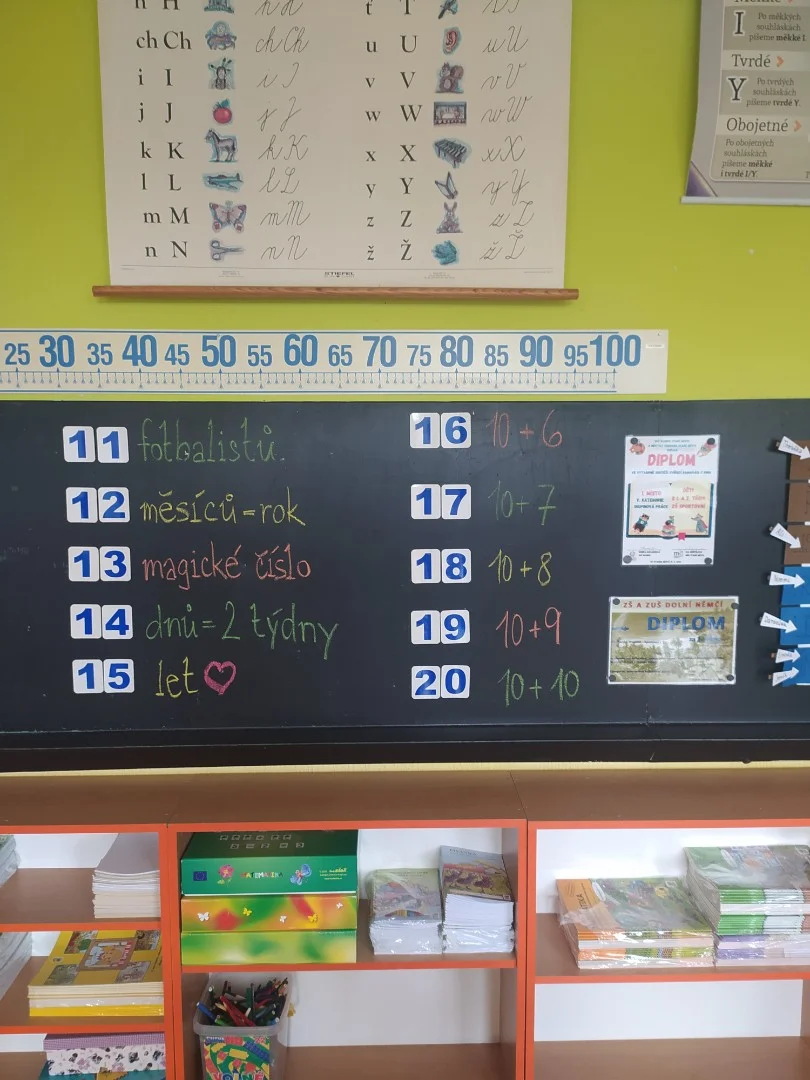 h H h H
ch Ch ch Ch
i I i I
j J j J
k K k K
l L l L
m M m M
n N n N
t T t T
u U u U
v V v V
w W w W
x X x X
y Y y Y
z Z z Z
ž Ž ž Ž
STIEFEL
I Po měkkých souhláskách píšeme měkké I.
Tvrdé
Y Po tvrdých souhláskách píšeme tvrdé Y.
Obojetné
Po obojetných
souhláskách
píšeme měkké
i tvrdé I/Y.
25 30 35 40 45 50 55 60 65 70 75 80 85 90 95 100
11 fotbalistů.
12 měsíců = rok
13 magické číslo
14 dnů = 2 týdny
15 let
16 10 + 6
17 10 + 7
18 10 + 8
19 10 + 9
20 10 + 10
DIPLOM
ZŠ A ZUŠ DOLNÍ NĚMČÍ
DIPLOM
MATEMATIKA